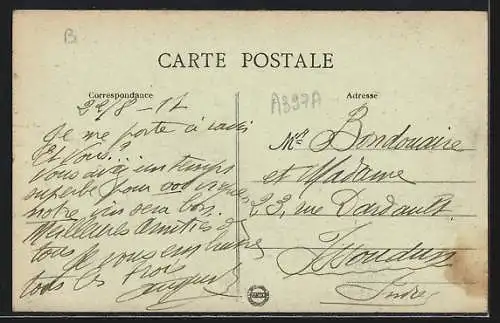 B
CARTE POSTALE
Correspondance
Adresse
A397A
22/8 - 17
Je me porte à ravir
Et vous?...
Vous avez un temps
superbe pour vos vignes
notre vin sera bon.
Meilleures amitiés de
tous
Je vous embrasse
tous les trois
Mr Bondonaire
et Madame
23, rue Dardault
Issoudun
Indre